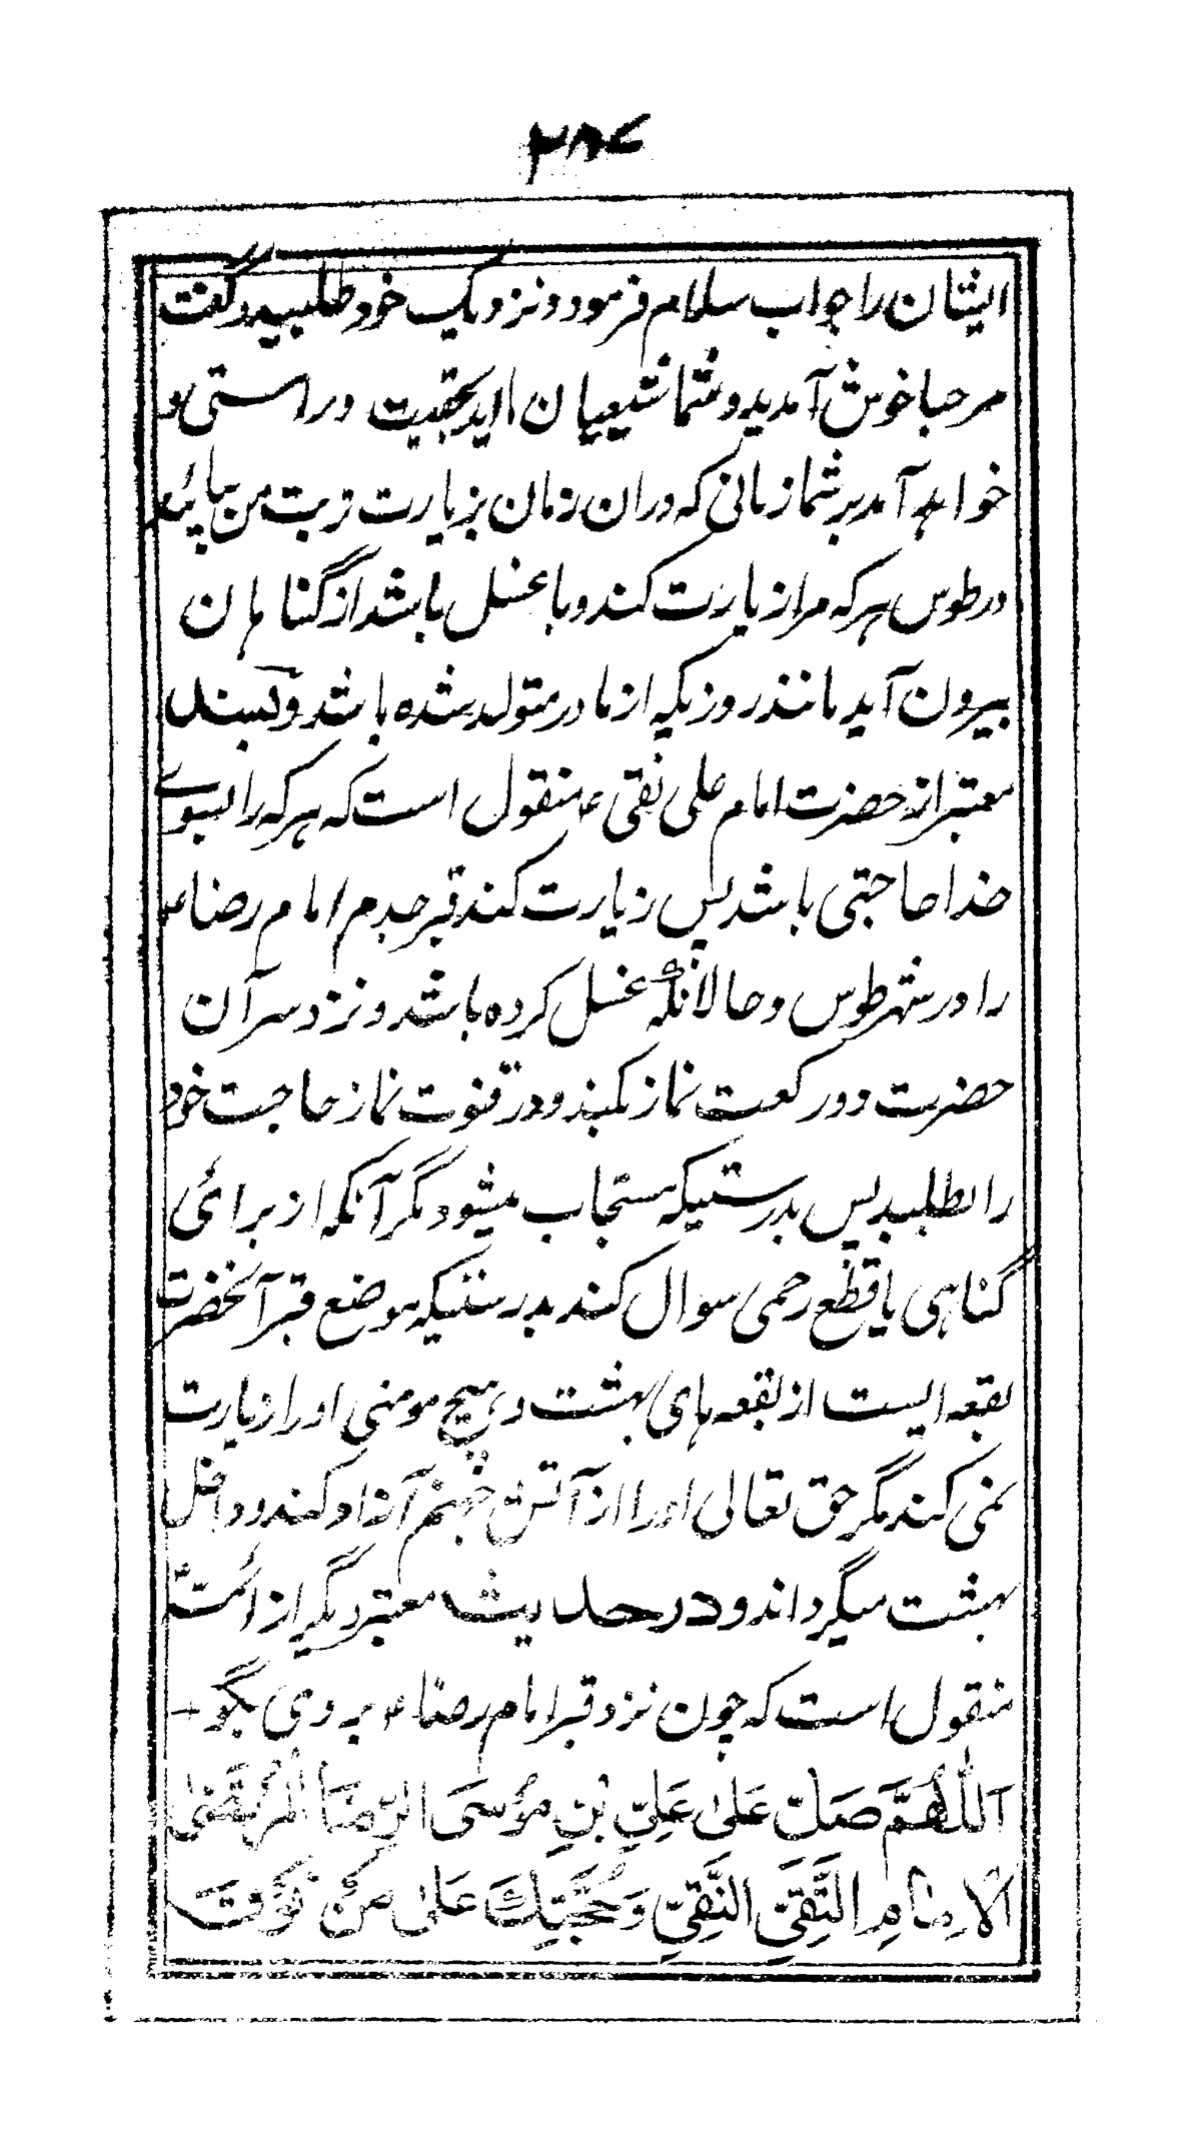 ۲۸۷
ایشان را جواب سلام فرمود و نزدیک خود طلبید و گفت
مرحبا خوش آمدید و شما شیعیان مااید بحقیقت و راستی و
خواهد آمد بر شما زمانی که دران زمان بزیارت تربت من بیائید
در طوس هر که مرا زیارت کند و با غسل باشد از گناهان
بیرون آید مانند روزیکه از مادر متولد شده باشد و بسند
معتبر از حضرت امام علی نقی ع منقول است که هر که را بسوے
خدا حاجتی باشد پس زیارت کند قبر جدم امام رضا ع
را در شهر طوس و حالانکه غسل کرده باشد و نزد سر آن
حضرت دو رکعت نماز بکند و در قنوت نماز حاجت خود
را بطلبد پس بدرستیکه مستجاب میشود مگر آنکه از برائی
گناهی یا قطع رحمی سوال کند بدرستیکه موضع قبر آنحضرت
بقعه ایست از بقعه های بهشت و هیچ مومنی او را زیارت
نمی کند مگر حق تعالی او را از آتش جهنم آزاد کند و داخل
بهشت میگرداند و در حدیث معتبر دیگر از ائمه
منقول است که چون نزد قبر امام رضا ع بروی بگو
اَللّٰهُمَّ صَلِّ عَلیٰ عَلِیِّ بْنِ مُوْسَی الرِّضَا الْمُرْتَضٰی
الْاِمَامِ التَّقِیِّ النَّقِیِّ وَحُجَّتِكَ عَلیٰ مَنْ فَوْقَ